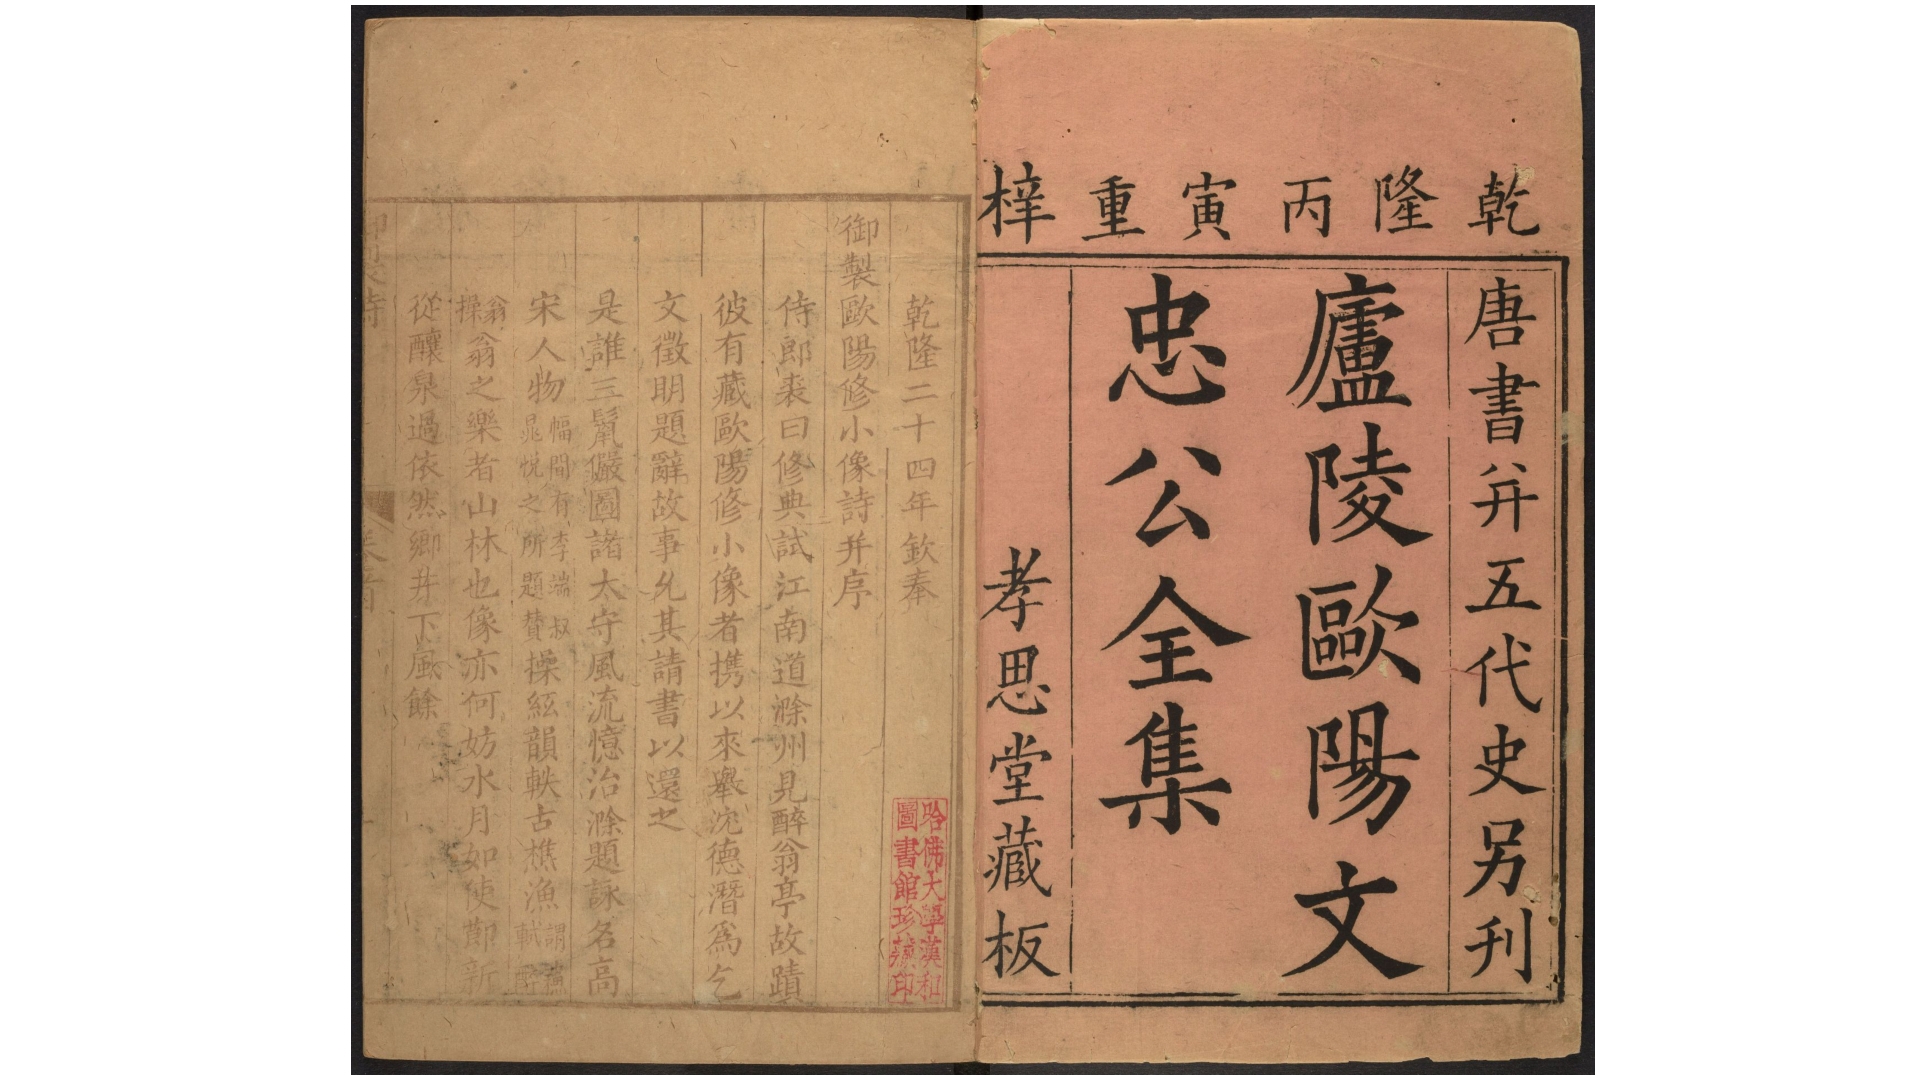 乾隆丙寅重梓
唐書并五代史另刊
廬陵歐陽文
忠公全集
孝思堂藏板
乾隆二十四年欽奉
御製歐陽修小像詩并序
侍郎裘曰修典試江南道滁州見醉翁亭故蹟
彼有藏歐陽修小像者携以來舉沈德潛爲乞
文徵明題辭故事允其請書以還之
是誰三髯儼圖諸太守風流憶治滁題詠名高
宋人物幅間有李端叔晁悅之所題贊操絃韻軼古樵漁謂醉
翁操翁之樂者山林也像亦何妨水月如使節新
從釀泉過依然卿井下風餘
哈佛大學漢和
圖書館珍藏印